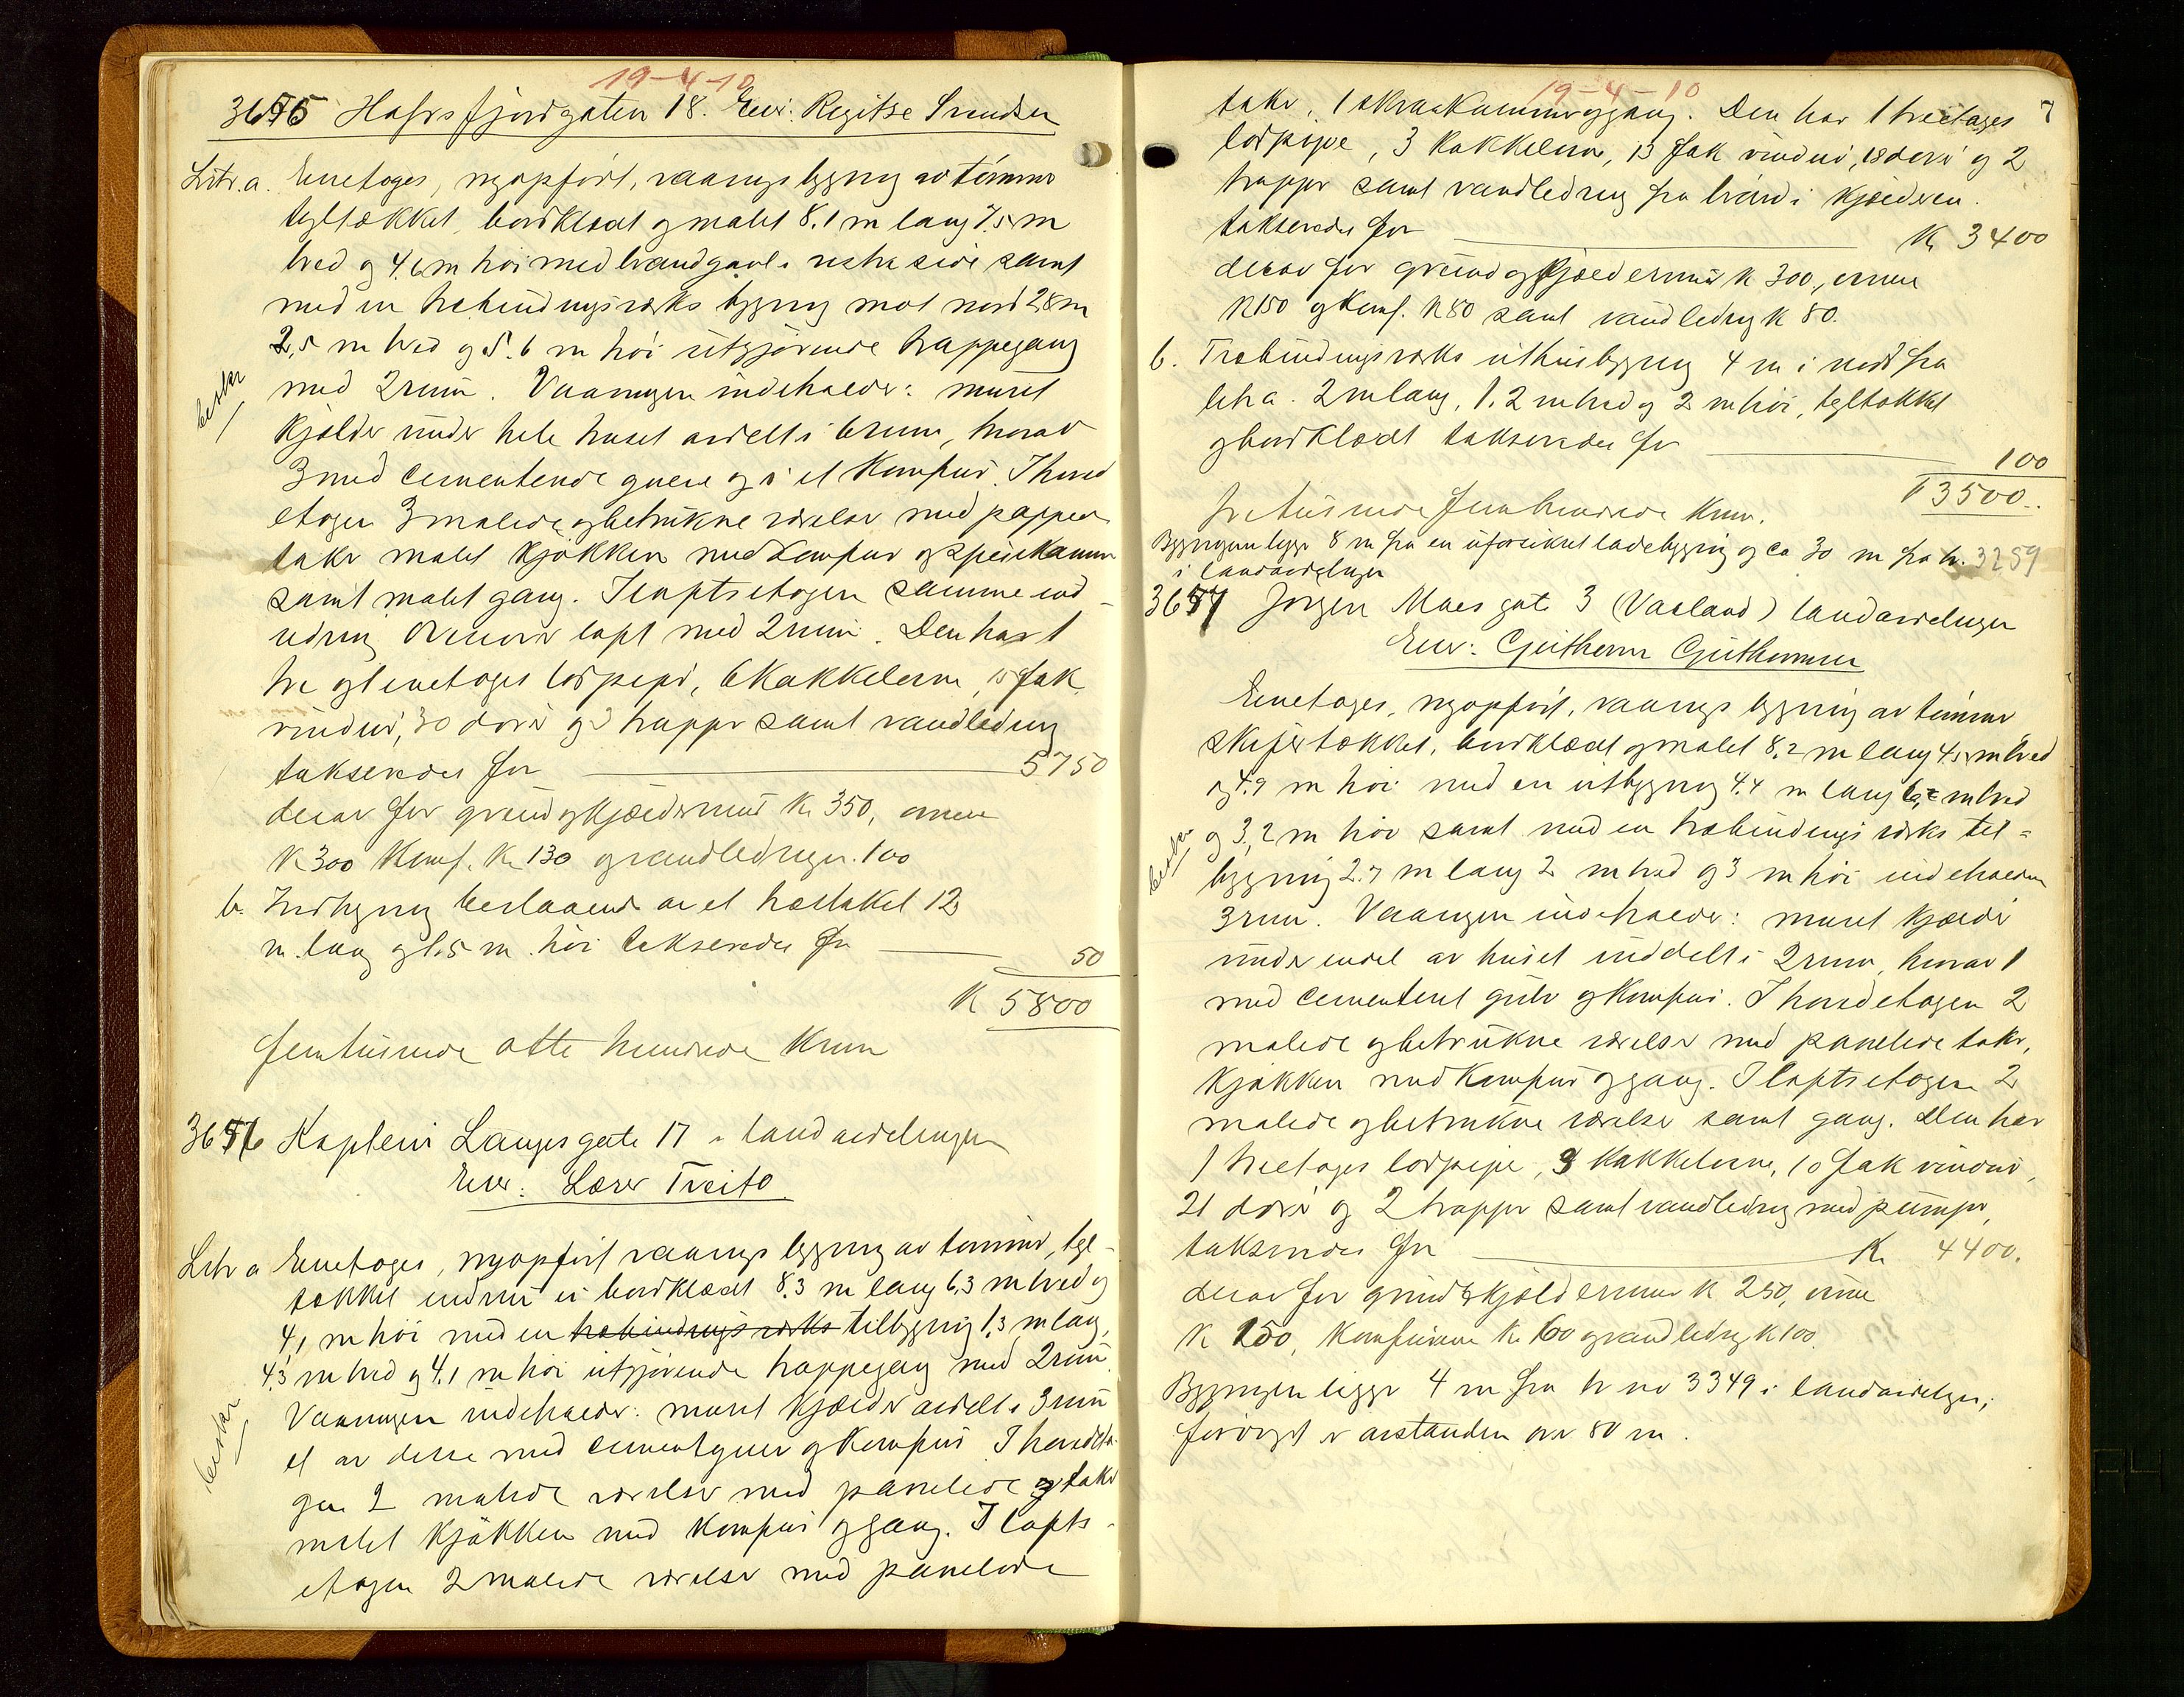 19-4-10
3655 Hafrsfjordgaten 18. Eier: Regitse Svendsen
Litr. a. Enetages, nyopført, vaaningsbygning av tømmer
tegltækket, bordklædt og malet 8.1 m lang 7.5 m
bred og 4.6 m høi med brandgavl i vestre side samt
med en træbindingsværks bygning mot nord 2.8 m
2,5 m bred og 5.6 m høi utgjørende trappegang
med 2 rum. Vaaningen indeholder: muret
kjelder under hele huset avdelt i 6 rum, hvorav
3 med cementerede gulve og i et komfur. I hoved
etagen 3 malede og betrukne værelser med pappede
taker malet kjøkken med komfur og spisekammer
samt malet gang. I loftsetagen samme ind-
redning Ovenover loft med 2 rum. Den har 1
tre og 1 enetages lodpiper, 6 kakkelovne, 15 fak
vinduer, 30 dører og 3 trapper samt vandledning
takseredes for 5750
derav for grund og kjeldermur Kr 350, ovnene
K 300 Komf. Kr 130 og vandledningen 100
b. Indhegning bestaaende av et træstaket 12
m. lang og 1.5 m. høi takseredes for 50
K 5800
Femtusinde otte hundrede Kroner
3656 Kaptein Langes gate 17 i landavdelingen
Eier: Lærer Tveito
Litr a Enetages, nyopført vaaningsbygning av tømmer, tegl-
tækket bordklædt 8.3 m lang 6.3 m bred og
4,1 m høi med en træbindingsværks tilbygning 1,3 m lang,
4.3 m bred og 4.1 m høi utgjørende trappegang med 2 rum
Vaaningen indeholder: muret kjelder avdelt i 3 rum
et av disse med cementgulv og komfur I hovedeta-
gen 2 malede værelser med panelede taker
malet kjøkken med komfur og gang. I lofts-
etagen 2 malede værelser med panelede
19-4-10
7
taker, 1 skraakammer og gang. Den har 1 treetages
lodpipe, 3 kakkelovne, 13 fak vinduer, 18 dører og 2
trapper samt vandledning fra brønd i kjelderen.
takseredes for K 3400
derav for grund og kjeldermur K 300, ovnene
K 150 og Komf. K 80 samt vandledning K 80.
b. Træbindingsværks uthusbygning 4 m i nord fra
litr a. 2 m lang, 1.2 m bred og 2 m høi, tegltækket
og bordklædt takseredes for 100
K 3500.
Tretusinde femhundrede Kroner.
Bygningen ligger 8 m fra en uforsikret ladebygning og ca 30 m fra br. 3259
i landavdelingen
3657 Jørgen Moes gate 3 (Vaaland) landavdelingen
Eier: Guthorm Guthormsen
Enetages, nyopført, vaaningsbygning av tømmer
skifertækket, bordklædt og malet 8.2 m lang 4.5 m bred
og 4.9 m høi med en utbygning 4.4 m lang m bred
og 3,2 m høi samt med en træbindingsværks til=
bygning 2.7 m lang 2 m bred og 3 m høi indeholdende
3 rum. Vaaningen indeholder: muret kjelder
under endel av huset inddelt i 2 rum, hvorav 1
med cementeret gulv og komfur. I hovedetagen 2
malede og betrukne værelser med panelede taker,
kjøkken med komfur og gang. I loftsetagen 2
malede og betrukne værelser samt gang. Den har
1 treetages lodpipe, 3 kakkelovne, 10 fak vinduer,
21 dører og 2 trapper samt vandledning med pumpe,
takseredes for Kr 4400.
derav for grund & kjeldermur K 250, ovnene
K 150, Komfurene Kr 100 og vandledning K 100.
Bygningen ligger 4 m fra br no 3349 i landavdelingen;
forøvrigt er avstanden over 80 m.